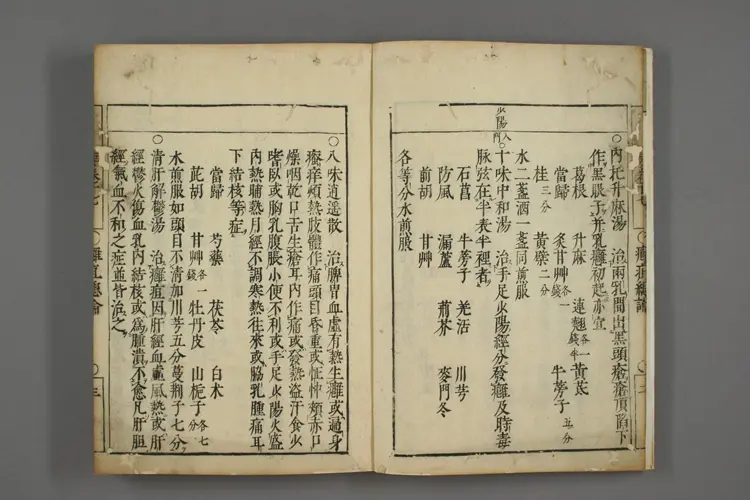 ○內托升麻湯　治兩乳間出黑頭瘡瘡頂陷下
作黑眼子并乳癰初起亦宜
葛根　升麻　連翹各一錢半　黃芪
當歸　炙甘艸各一錢　牛蒡子五分
桂三分　黃檗二分
水二盞酒一盞同煎服
少陽入門
○十味中和湯　治手足少陽經分發癰及時毒
脉弦在半表半裡者
石菖　牛蒡子　羌活　川芎
防風　漏蘆　荊芥　麥門冬
前胡　甘艸
各等分水煎服
○八味逍遥散　治脾胃血虛有熱生癰或遍身
瘙痒煩熱肢體作痛頭目昏重或怔忡頰赤口
燥咽乾口舌生瘡耳內作痛或發熱盜汗食少
嗜臥或胸乳腹脹小便不利或手足少陽火盛
內熱晡熱月經不調寒熱往來或脇乳腫痛耳
下結核等症
當歸　芍藥　茯苓　白术
茈胡　甘艸各一錢　牡丹皮　山梔子各七分
水煎服如頭目不清加川芎五分蔓荊子七分
○清肝解鬱湯　治癰疽因肝經血虛風熱或肝
經鬱火傷血乳內結核或爲腫潰不愈凡肝胆
經氣血不和之症並皆治之